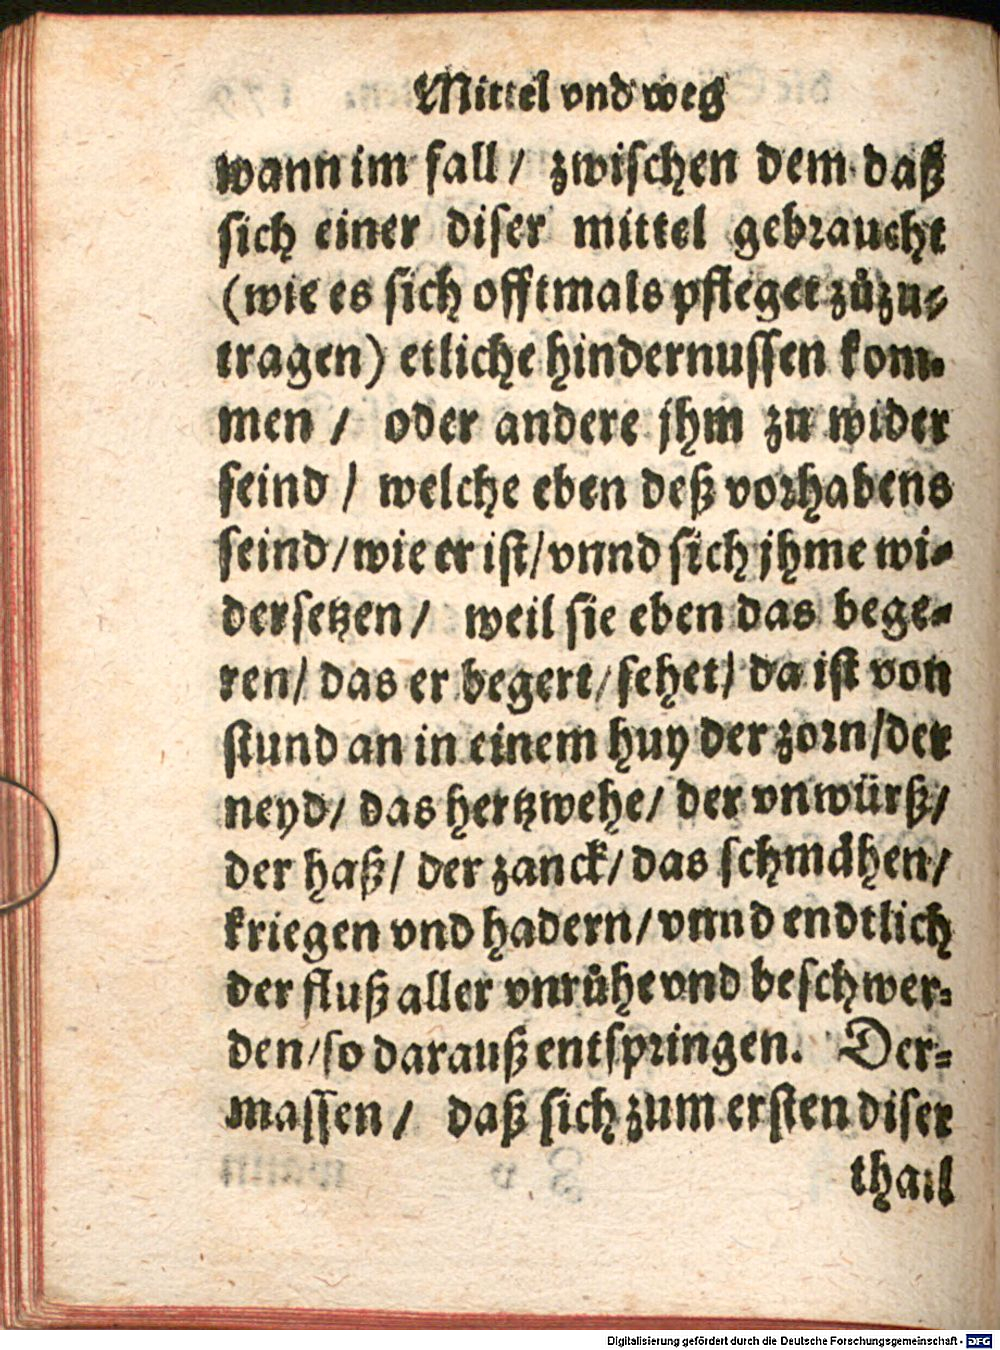 Mittel vnd weg
wann im fall / zwischen dem daß
sich einer diser mittel gebraucht
(wie es sich offtmals pfleget zůzu-
tragen) etliche hindernussen kom-
men / oder andere jhm zu wider
seind / welche eben deß vorhabens
seind / wie er ist / vnnd sich jhme wi-
dersetzen / weil sie eben das bege-
ren / das er begert / sehet / da ist von
stund an in einem huy der zorn / der
neyd / das hertzwehe / der vnwürß /
der haß / der zanck / das schmåhen /
kriegen vnd hadern / vnnd endtlich
der fluß aller vnrůhe vnd beschwer-
den / so darauß entspringen. Der-
massen / daß sich zum ersten diser
thail
Digitalisierung gefördert durch die Deutsche Forschungsgemeinschaft - DFG